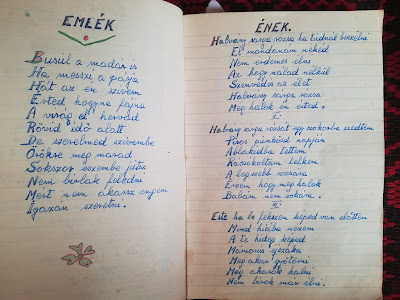 EMLÉK
Búsúl a madár is
Ha messze a párja
Hát az én szívem
Érted hogyne fájna
A virág el hervád
Rövid idő alatt
De szerelmed szívembe
Örökre meg marad
Sokszor eszembe jutsz
Nem birlak feledni
Mért nem akarsz engem
Igazán szeretni.
ÉNEK.
Halvány sárga rózsa ha tudnál beszélni
El mondanám néked
Nem érdemes élni
Az hogy nálad nélkül
Szenvedés az élet
Halvány sárga rózsa
Meg halok én érted.
II
Halvány sárga rózsát egy csokorba szedtem
Piros pünkösd napján
Ablakidba tettem
Rácsókoltam lelkem
A legszebb rózsára
Érzem hogy meg halok
Babám nem sokára.
III
Este ha le fekszem képed van előttem
Mind hiába nézem
A te hideg képed
Mámoros éjszaka
Meg akar gyötörni
Meg akarok halni
Nem birok már élni.